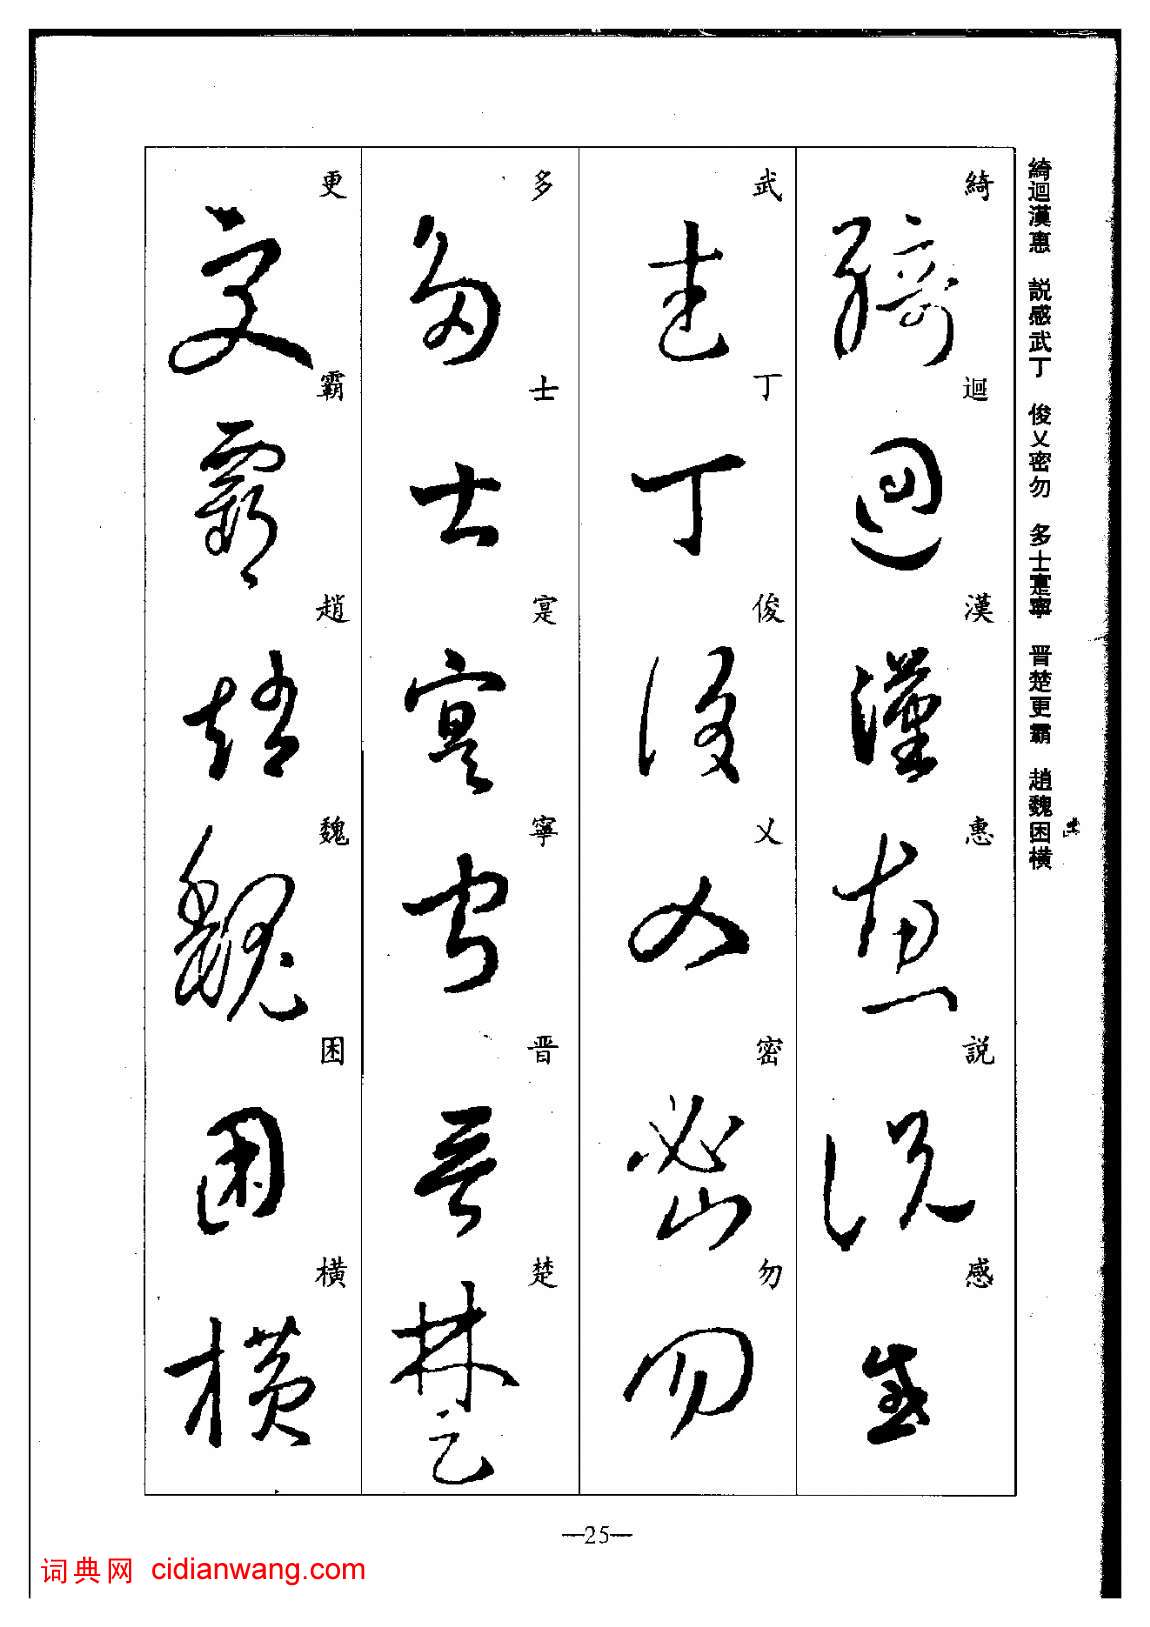 綺迴漢惠 説感武丁 俊乂密勿 多士寔寧 晋楚更霸 趙魏困橫
綺迴漢惠説感
武丁俊乂密勿
多士寔寧晋楚
更霸趙魏困橫
—25—
词典网 cidianwang.com